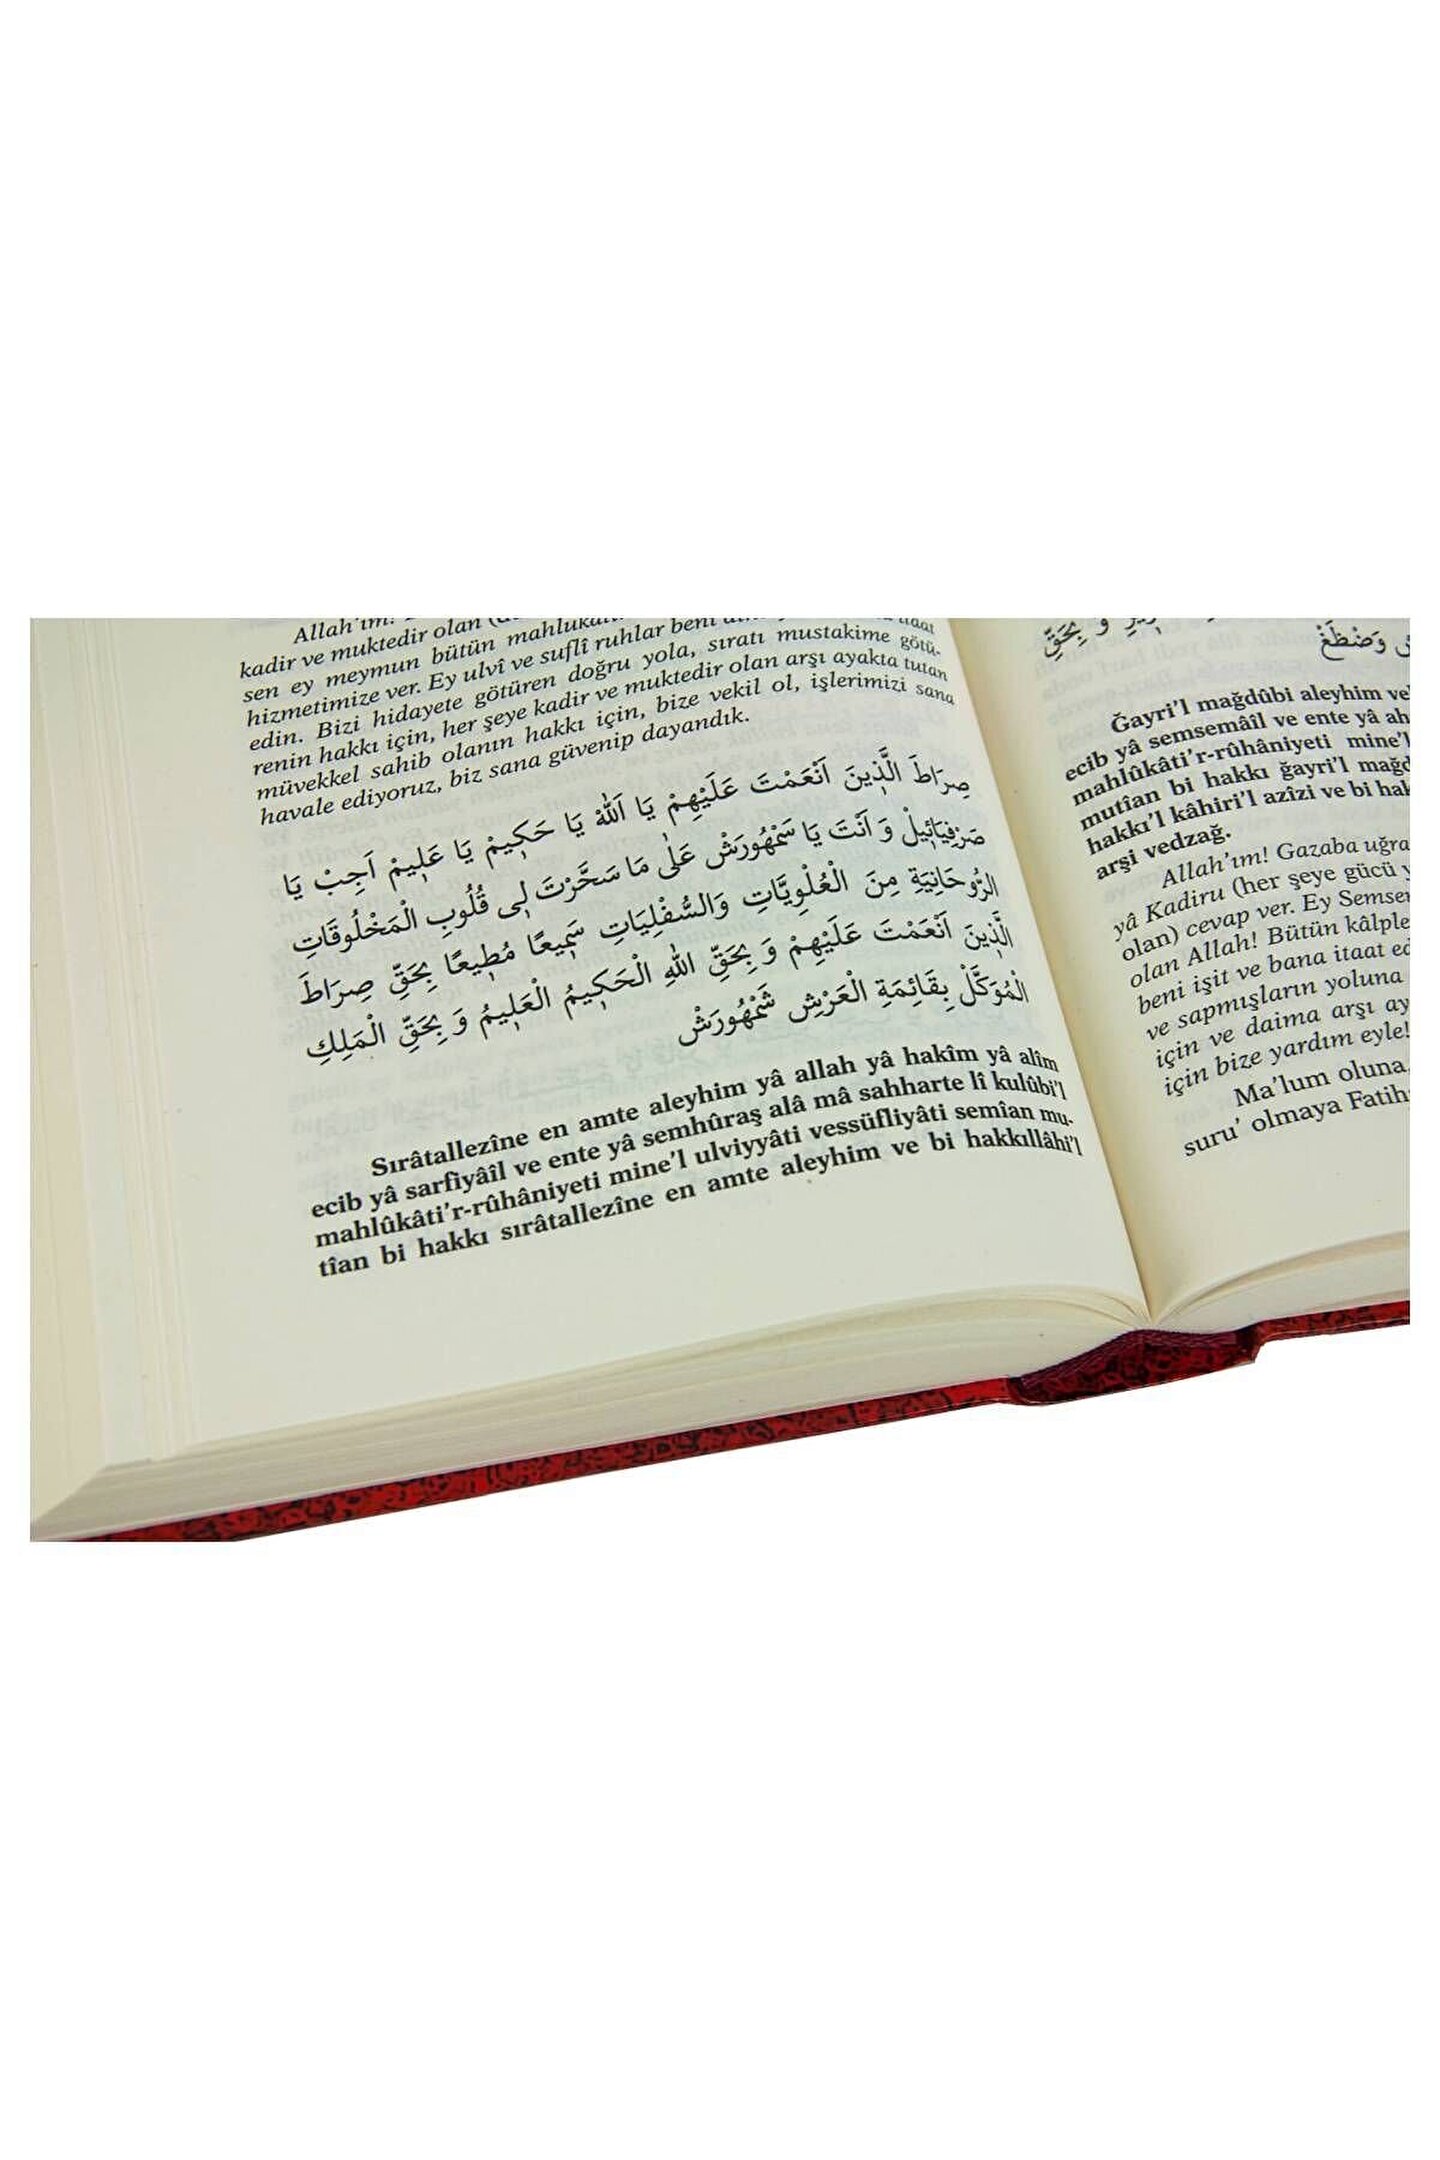 Allah'ım!
kadir ve muktedir olan
sen ey meymun bütün mahlukatı
hizmetimize ver. Ey ulvî ve suflî ruhlar beni itaat
edin. Bizi hidayete götüren doğru yola, sıratı mustakime götü-
renin hakkı için, her şeye kadir ve muktedir olan arşı ayakta tutan
müvekkel sahib olanın hakkı için, bize vekil ol, işlerimizi sana
havale ediyoruz, biz sana güvenip dayandık.
صِرَاطَ الَّذِينَ اَنْعَمْتَ عَلَيْهِمْ يَا اَللهُ يَا حَكِيمُ يَا عَلِيمُ اَجِبْ يَا
صَرْفِيَائِيلُ وَ اَنْتَ يَا سَمْهُورَشْ عَلٰى مَا سَخَّرْتَ لِى قُلُوبِ الْمَخْلُوقَاتِ
الرُّوحَانِيَةِ مِنَ الْعُلْوِيَّاتِ وَالسُّفْلِيَاتِ سَمِيعًا مُطِيعًا بِحَقِّ صِرَاطَ
الَّذِينَ اَنْعَمْتَ عَلَيْهِمْ وَ بِحَقِّ اللهِ الْحَكِيمُ الْعَلِيمُ وَ بِحَقِّ الْمَلِكِ
الْمُوَكَّلْ بِقَائِمَةِ الْعَرْشِ شَمْهُورَشْ
Sırâtallezîne en amte aleyhim yâ allah yâ hakîm yâ alîm
ecib yâ sarfiyâîl ve ente yâ semhûraş alâ mâ sahharte lî kulûbi'l
mahlûkâti'r-rûhâniyeti mine'l ulviyyâti vessüfliyâti semîan mu-
tîan bi hakkı sırâtallezîne en amte aleyhim ve bi hakkıllâhi'l
وَ بِحَقِّ
وَضْطَغْ
Ğayri'l mağdûbi aleyhim
ecib yâ semsemâîl ve ente yâ
mahlûkâti'r-rûhâniyeti mine'l
mutîan bi hakkı ğayri'l
hakkı'l kâhiri'l azîzi ve bi
arşi vedzağ.
Allah'ım! Gazaba
yâ Kadiru (her şeye gücü
olan) cevap ver. Ey
olan Allah! Bütün
beni işit ve bana itaat
ve sapmışların yoluna
için ve daima arşı
için bize yardım eyle!
Ma'lum oluna,
suru' olmaya